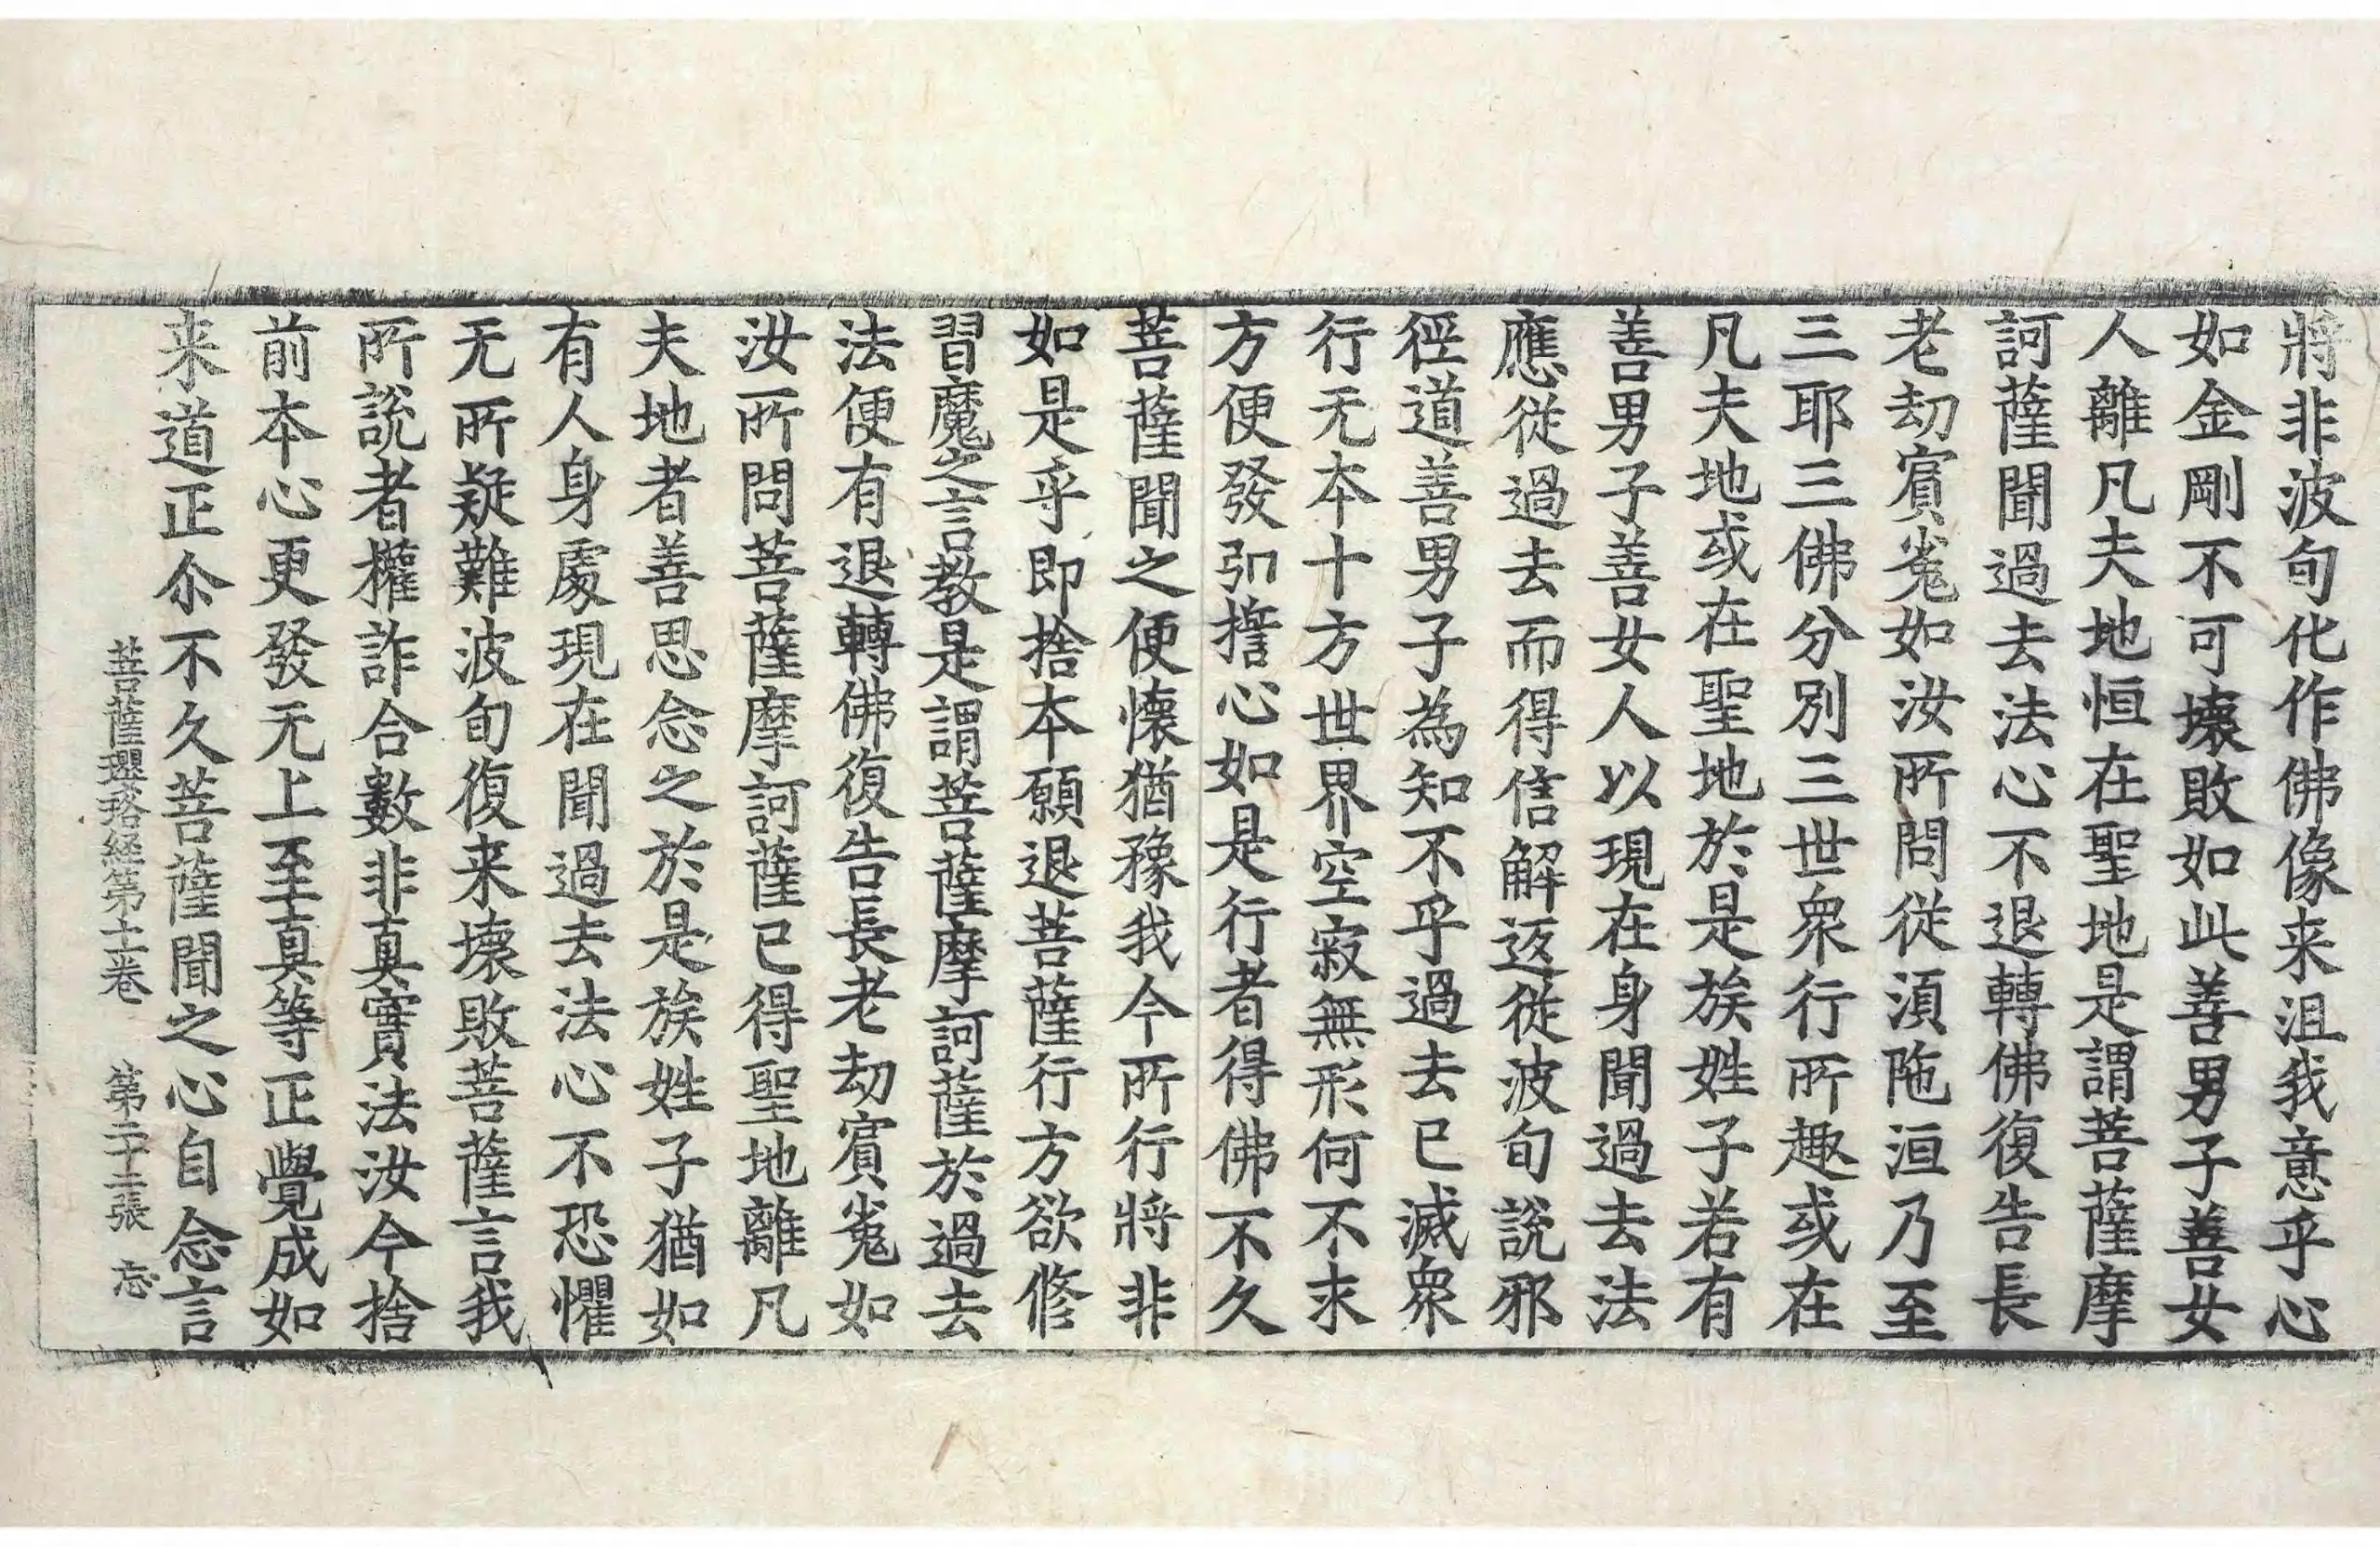 將非波旬化作佛像来沮我意乎心
如金剛不可壞敗如此善男子善女
人離凡夫地恒在聖地是謂菩薩摩
訶薩聞過去法心不退轉佛復告長
老劫賔㝹如汝所問從湏陁洹乃至
三耶三佛分別三世衆行所趣或在
凡夫地或在聖地於是族姓子若有
善男子善女人以現在身聞過去法
應從過去而得信解返從波旬說邪
徑道善男子為知不乎過去已滅衆
行无本十方世界空寂無形何不求
方便發弘誓心如是行者得佛不久
菩薩聞之便懷猶豫我今所行將非
如是乎即捨本願退菩薩行方欲修
習魔之言教是謂菩薩摩訶薩於過去
法便有退轉佛復告長老劫賔㝹如
汝所問菩薩摩訶薩已得聖地離凡
夫地者善思念之於是族姓子猶如
有人身處現在聞過去法心不恐懼
无所疑難波旬復来壞敗菩薩言我
所說者權詐合數非真實法汝今捨
前本心更發无上至真等正覺成如
来道正尒不久菩薩聞之心自念言
菩薩瓔珞經第十二卷 第二十二張 忘